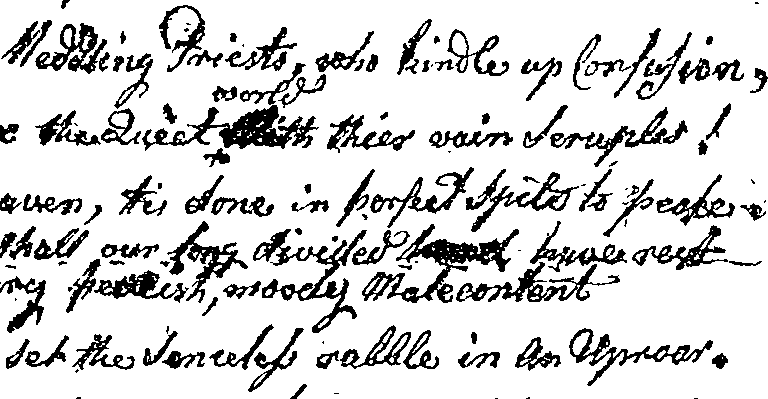 Meddling Priests, who kindle up Confusion,
world
the Quiet with thier vain scruples!
aven, tis done in perfect spite to peace
shall our long divided have rest
peevish, moody Malecontent
set the senceless rabble in an Uproar.